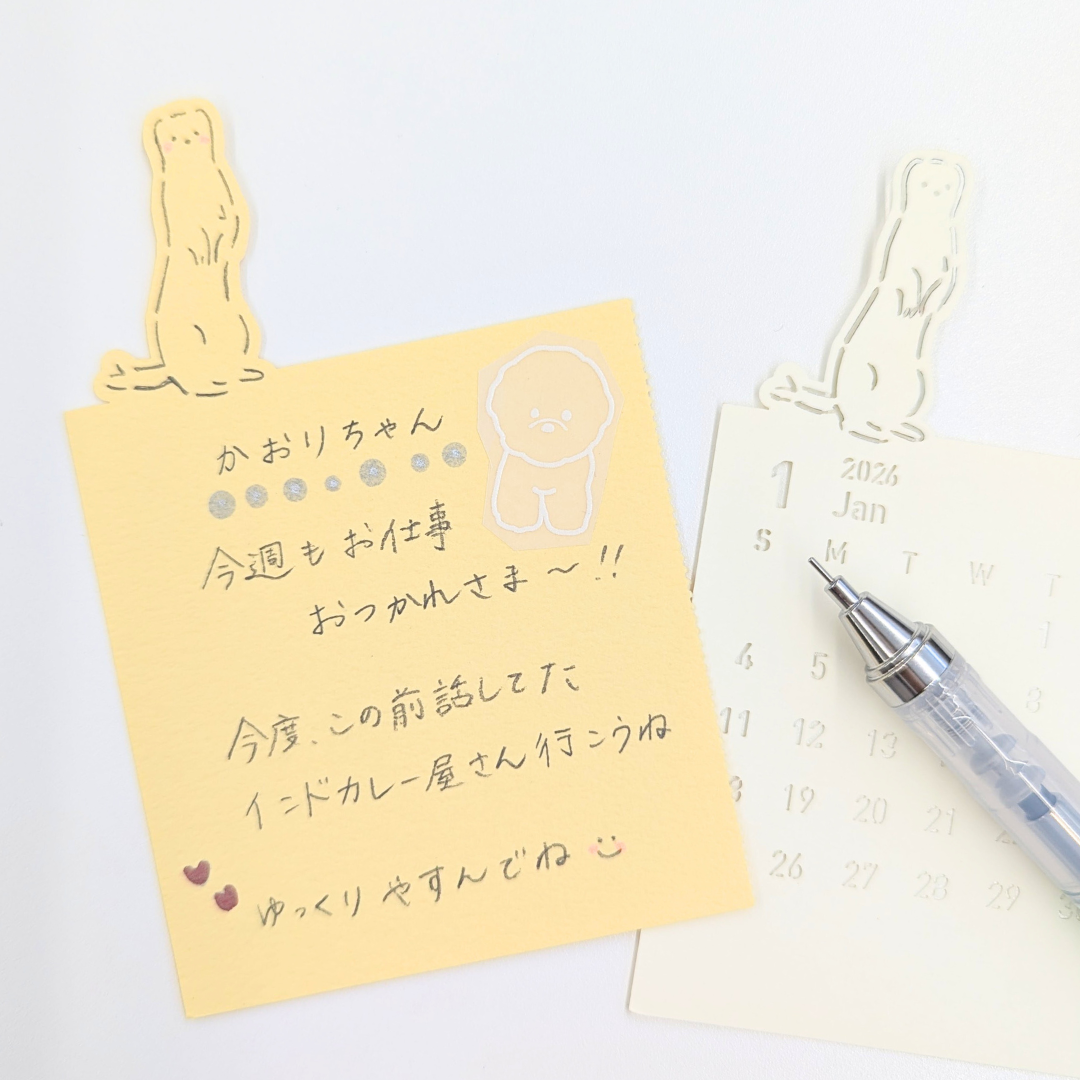 かおりちゃん
今週もお仕事
おつかれさま〜!!
今度、この前話してた
インドカレー屋さん行こうね
ゆっくりやすんでね
1 2026
Jan
S M T W T
1
4 5 8
11 12 13
19 20 21
26 27 28 29